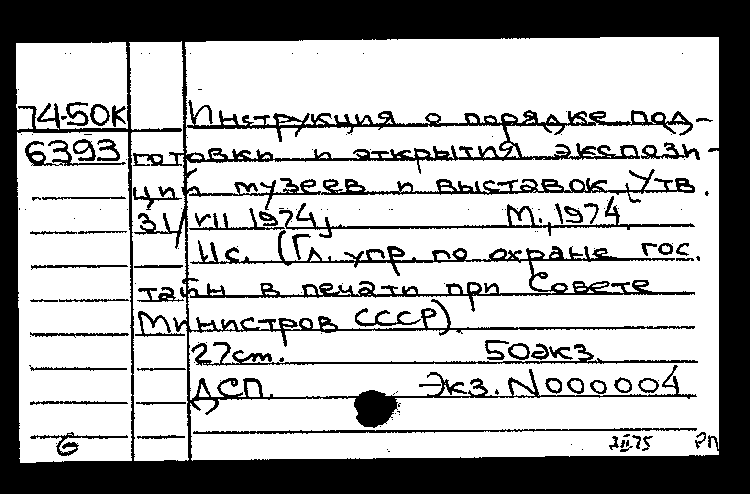 74-50К Инструкция о порядке под-
6393 готовки и открытия экспози-
ций музеев и выставок. Утв.
31/VII 1974г. М., 1974.
11с. (Гл. упр. по охране гос.
тайн в печати при Совете
Министров СССР).
27см. 50экз.
ДСП. Экз. N000004.
6 3II75 РП